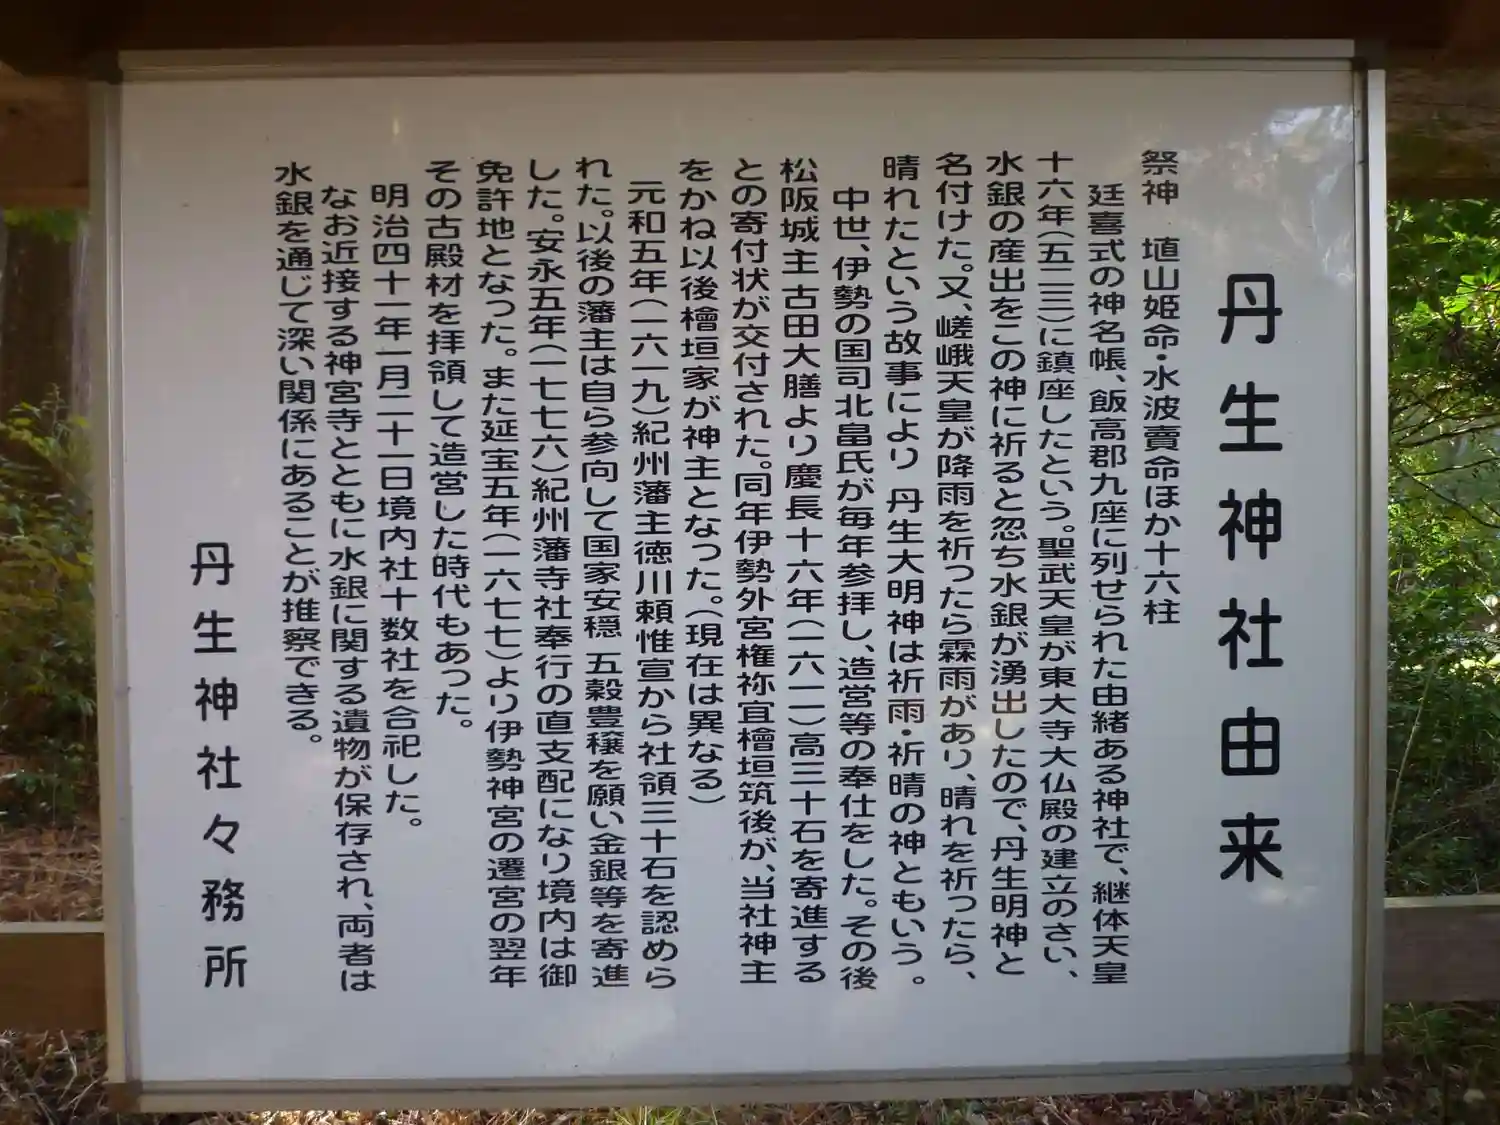 丹生神社由来
祭神　埴山姫命・水波賣命ほか十六柱
廷喜式の神名帳、飯高郡九座に列せられた由緒ある神社で、継体天皇
十六年（五二三）に鎮座したという。聖武天皇が東大寺大仏殿の建立のさい、
水銀の産出をこの神に祈ると忽ち水銀が湧出したので、丹生明神と
名付けた。又、嵯峨天皇が降雨を祈ったら霖雨があり、晴れを祈ったら、
晴れたという故事により 丹生大明神は祈雨・祈晴の神ともいう。
中世、伊勢の国司北畠氏が毎年参拝し、造営等の奉仕をした。その後
松阪城主古田大膳より慶長十六年（一六一一）高三十石を寄進する
との寄付状が交付された。同年伊勢外宮権祢宜檜垣筑後が、当社神主
をかね以後檜垣家が神主となった。（現在は異なる）
元和五年（一六一九）紀州藩主徳川頼惟宣から社領三十石を認めら
れた。以後の藩主は自ら参向して国家安穏 五穀豊穣を願い金銀等を寄進
した。安永五年（一七七六）紀州藩寺社奉行の直支配になり境内は御
免許地となった。また延宝五年（一六七七）より伊勢神宮の遷宮の翌年
その古殿材を拝領して造営した時代もあった。
明治四十一年一月二十一日境内社十数社を合祀した。
なお近接する神宮寺とともに水銀に関する遺物が保存され、両者は
水銀を通じて深い関係にあることが推察できる。
丹生神社々務所